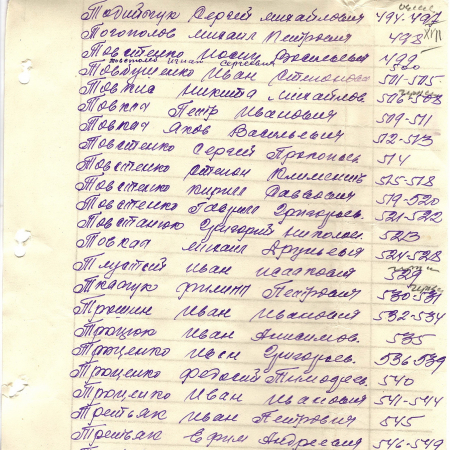 Товийчук Сергей Михайлович 494-497
Тогополов Михаил Петрович 498 XVII
Товстенко Иосиф Васильевич 499
Товбушенко Иван Степанович 501-505
Товкма Никита Михайлов 506-508
Товкач Петр Иванович 509-511
Товкач Яков Васильевич 512-513
Товстенко Сергей Прокопьев 514
Товстенко Степан Климентьев 515-518
Товстенко Кирилл Саввович 519-520
Товстенко Гаврил Григорьев. 521-522
Товстанюк Григорий Николаев 523
Товкач Михаил 524-528
Иван Исаакович 329
Ткачук Филипп Петрович 530-531
Трошин Иван Иванович 532-534
Троцюк Иван Анисимов. 535
Троценко Иосиф Григорьев. 536 539
Троценко Федосий Тимофеев. 540
Троценко Иван Иванович 541-544
Третьяк Иван Петрович 545
Третьяк Ефим Андреевич 546-549